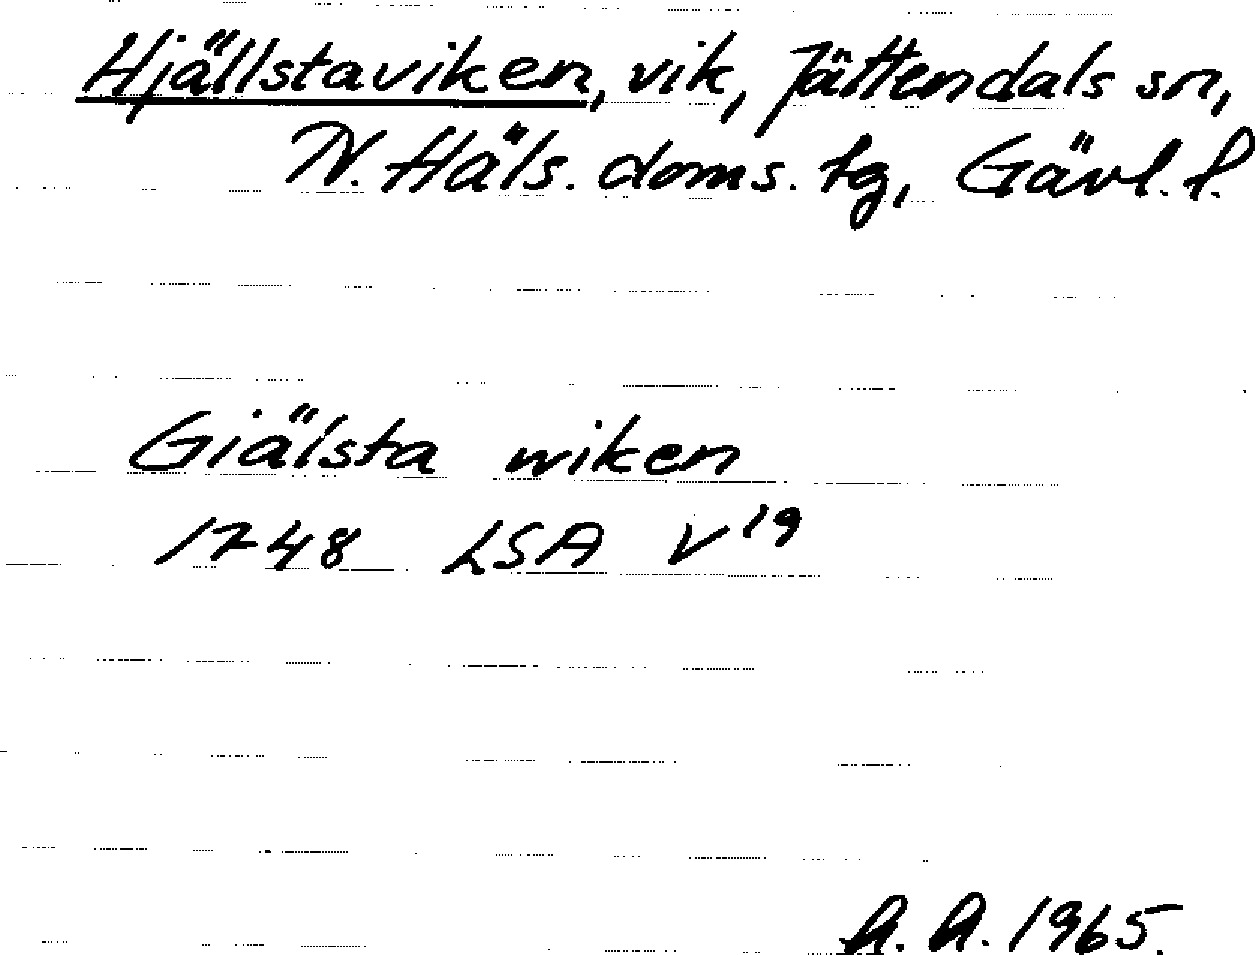 Hjällstaviken, vik, Jättendals sn,
N. Häls. doms. tg, Gävl. l.
Giälsta wiken
1748 LSA V¹⁹
A. A. 1965.